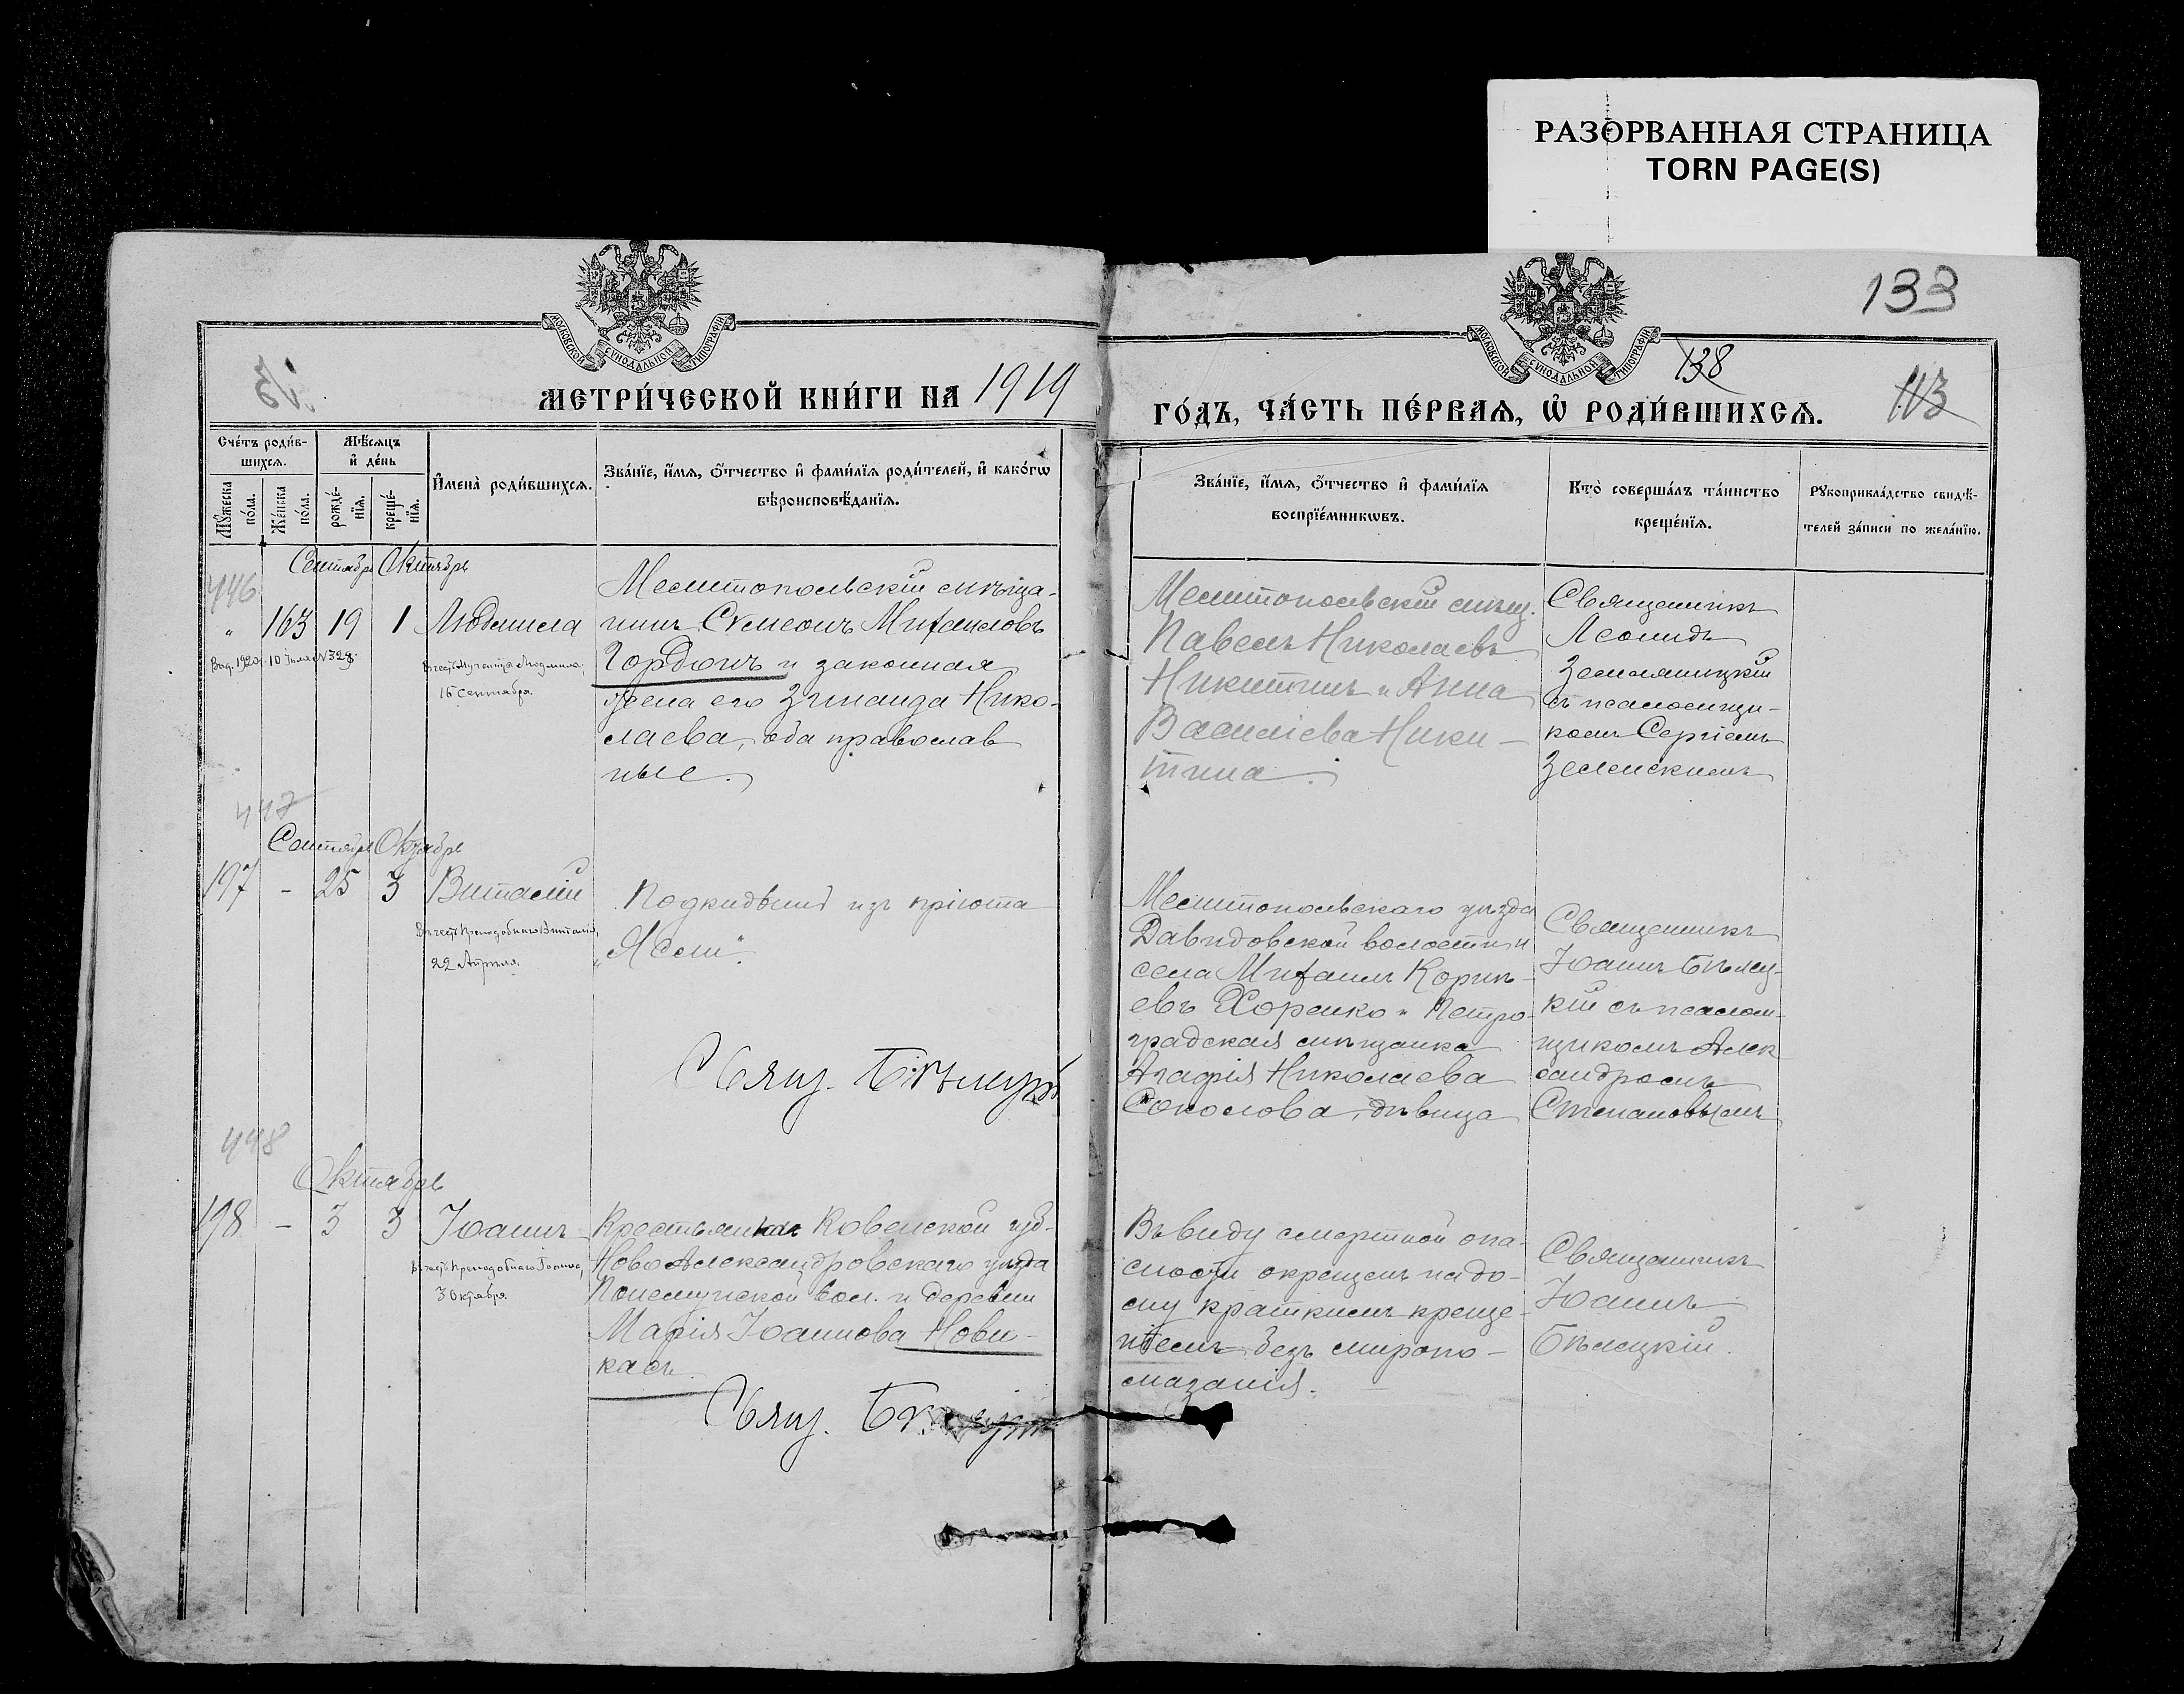 РАЗОРВАННАЯ СТРАНИЦА
TORN PAGE(S)
133
МОСКОВСКОЙ СУНОДАЛЬНОЙ ТИПОГРАФІИ
МОСКОВСКОЙ СУНОДАЛЬНОЙ ТИПОГРАФІИ
138
113
МЕТРИ́ЧЕСКОЙ КНИ́ГИ НА 1919
ГО́ДЪ, ЧА́СТЬ ПЕ́РВАѦ, Ѡ҆ РОДИ́ВШИХСѦ.
Сче́тъ роди́в-
шихсѧ.
Мꙋ́жеска
по́ла.
Же́нска
по́ла.
Мѣ́сѧцъ
и҆ де́нь
рожде́-
нїѧ.
креще́-
нїѧ.
И҆мена̀ роди́вшихсѧ.
Зва́нїе, и҆́мѧ, ѻ҆́тчество и҆ фами́лїѧ роди́телей, и҆ како́гѡ
вѣроисповѣ́данїѧ.
Зва́нїе, и҆́мѧ, ѻ҆́тчество и҆ фами́лїѧ
воспрїе́мникѡвъ.
Кто̀ соверша́лъ та́инство
креще́нїѧ.
Рꙋкоприкла́дство свидѣ́-
телей за́писи по жела́нїю.
446
Сентябрь Октябрь
" 163 19 1 Людмила
Выд. 1920 г. 10 Іюля №328.
Въ честь Мученицы Людмилы,
16 Сентября.
Мелитопольскій мѣща-
нинъ Симеонъ Михаиловъ
Гордонъ и законная
жена его Зинаида Нико-
лаева, оба православ
ные.
Мелитопольскій мѣщ.
Павелъ Николаевъ
Никитинъ и Анна
Василіева Ники-
тина.
Священникъ
Леонидъ
Земляницкій
съ псаломщи-
комъ Сергіемъ
Зеленскимъ
447
Сентябрь Октябрь
197 - 25 3 Виталій
Въ честь Преподобнаго Виталія,
22 Апрѣля.
Подкидышъ изъ пріюта
"Ясли".
Свящ. Бѣлецкій
Мелитопольскаго уѣзда
Давидовской волости и
села Михаилъ Корни-
евъ Хоренко и Петро-
градская мѣщанка
Агафія Николаева
Соколова, дѣвица
Священникъ
Іоаннъ Бѣлец-
кій съ псалом-
щикомъ Алек
сандромъ
Степановымъ
448
Октябрь
198 - 3 3 Іоаннъ
Въ честь Преподобнаго Іоанна,
3 Октября.
Крестьянка Ковенской губ.
Ново Александровскаго уѣзда
Понемунской вол. и деревни
Марія Іоаннова Нови-
касъ.
Свящ.
Въ виду смертной опа-
сности окрещенъ на до-
му краткимъ креще-
ніемъ безъ миропо-
мазанія.
Священникъ
Іоаннъ
Бѣлецкій.